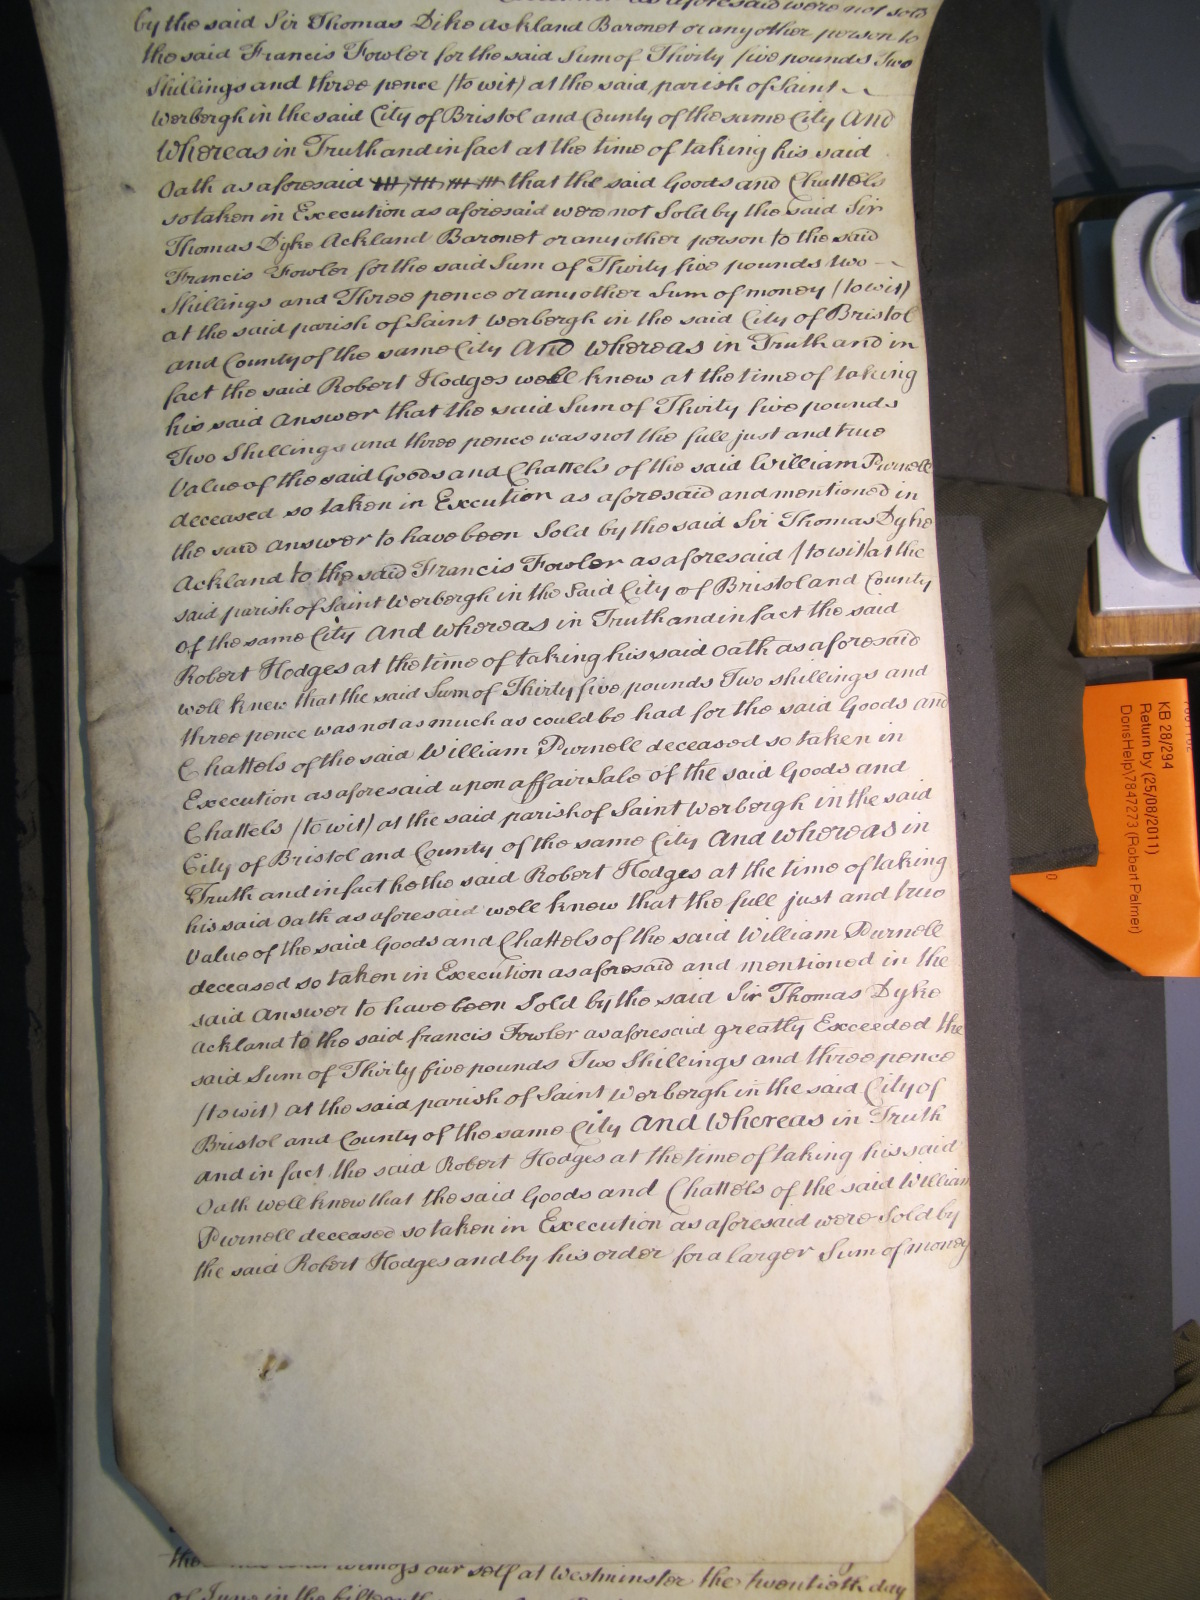 as aforesaid were not sold
by the said Sir Thomas Dike Ackland Baronet or any other person to
the said Francis Fowler for the said Sum of Thirty five pounds Two
Shillings and three pence (to wit) at the said parish of Saint
Werbergh in the said City of Bristol and County of the same City And
Whereas in Truth and in fact at the time of taking his said
Oath as aforesaid that the said Goods and Chattels
so taken in Execution as aforesaid were not Sold by the said Sir
Thomas Dyke Ackland Baronet or any other person to the said
Francis Fowler for the said Sum of Thirty five pounds two
Shillings and Three pence or any other Sum of money (to wit)
at the said parish of Saint Werbergh in the said City of Bristol
and County of the same City And Whereas in Truth and in
fact the said Robert Hodges well knew at the time of taking
his said Answer that the said Sum of Thirty five pounds
Two Shillings and three pence was not the full just and true
Value of the said Goods and Chattels of the said William Purnell
deceased so taken in Execution as aforesaid and mentioned in
the said Answer to have been Sold by the said Sir Thomas Dyke
Ackland to the said Francis Fowler as aforesaid (to wit) at the
said parish of Saint Werbergh in the Said City of Bristol and County
of the same City And Whereas in Truth and in fact the said
Robert Hodges at the time of taking his said Oath as aforesaid
well knew that the said Sum of Thirty five pounds Two shillings and
three pence was not as much as could be had for the said Goods and
Chattels of the said William Purnell deceased so taken in
Execution as aforesaid upon a ffair Sale of the said Goods and
Chattels (to wit) at the said parish of Saint Werbergh in the said
City of Bristol and County of the same City And Whereas in
Truth and in fact he the said Robert Hodges at the time of taking
his said Oath as aforesaid well knew that the full just and true
Value of the said Goods and Chattels of the said William Purnell
deceased so taken in Execution as aforesaid and mentioned in the
said Answer to have been Sold by the said Sir Thomas Dyke
Ackland to the said francis Fowler as aforesaid greatly Exceeded the
said Sum of Thirty five pounds Two Shillings and three pence
(to wit) at the said parish of Saint Werbergh in the said City of
Bristol and County of the same City And Whereas in Truth
and in fact the said Robert Hodges at the time of taking his said
Oath well knew that the said Goods and Chattels of the said William
Purnell deceased so taken in Execution as aforesaid were Sold by
the said Robert Hodges and by his order for a larger Sum of money
the witness our self at Westminster the twentieth day
of June in the fifteenth
KB 28/294
Return by (25/08/2011)
DorisHelp\7847273 (Robert Palmer)